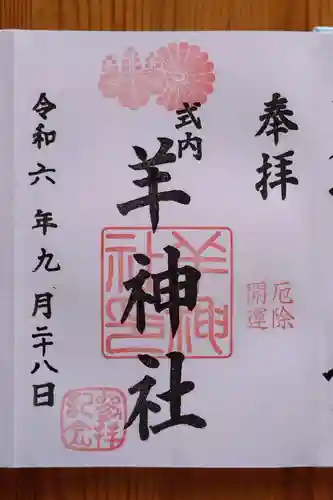 奉拝
厄除
開運
式内
羊神社
羊神社之印
令和六年九月二十八日
参拝
記念